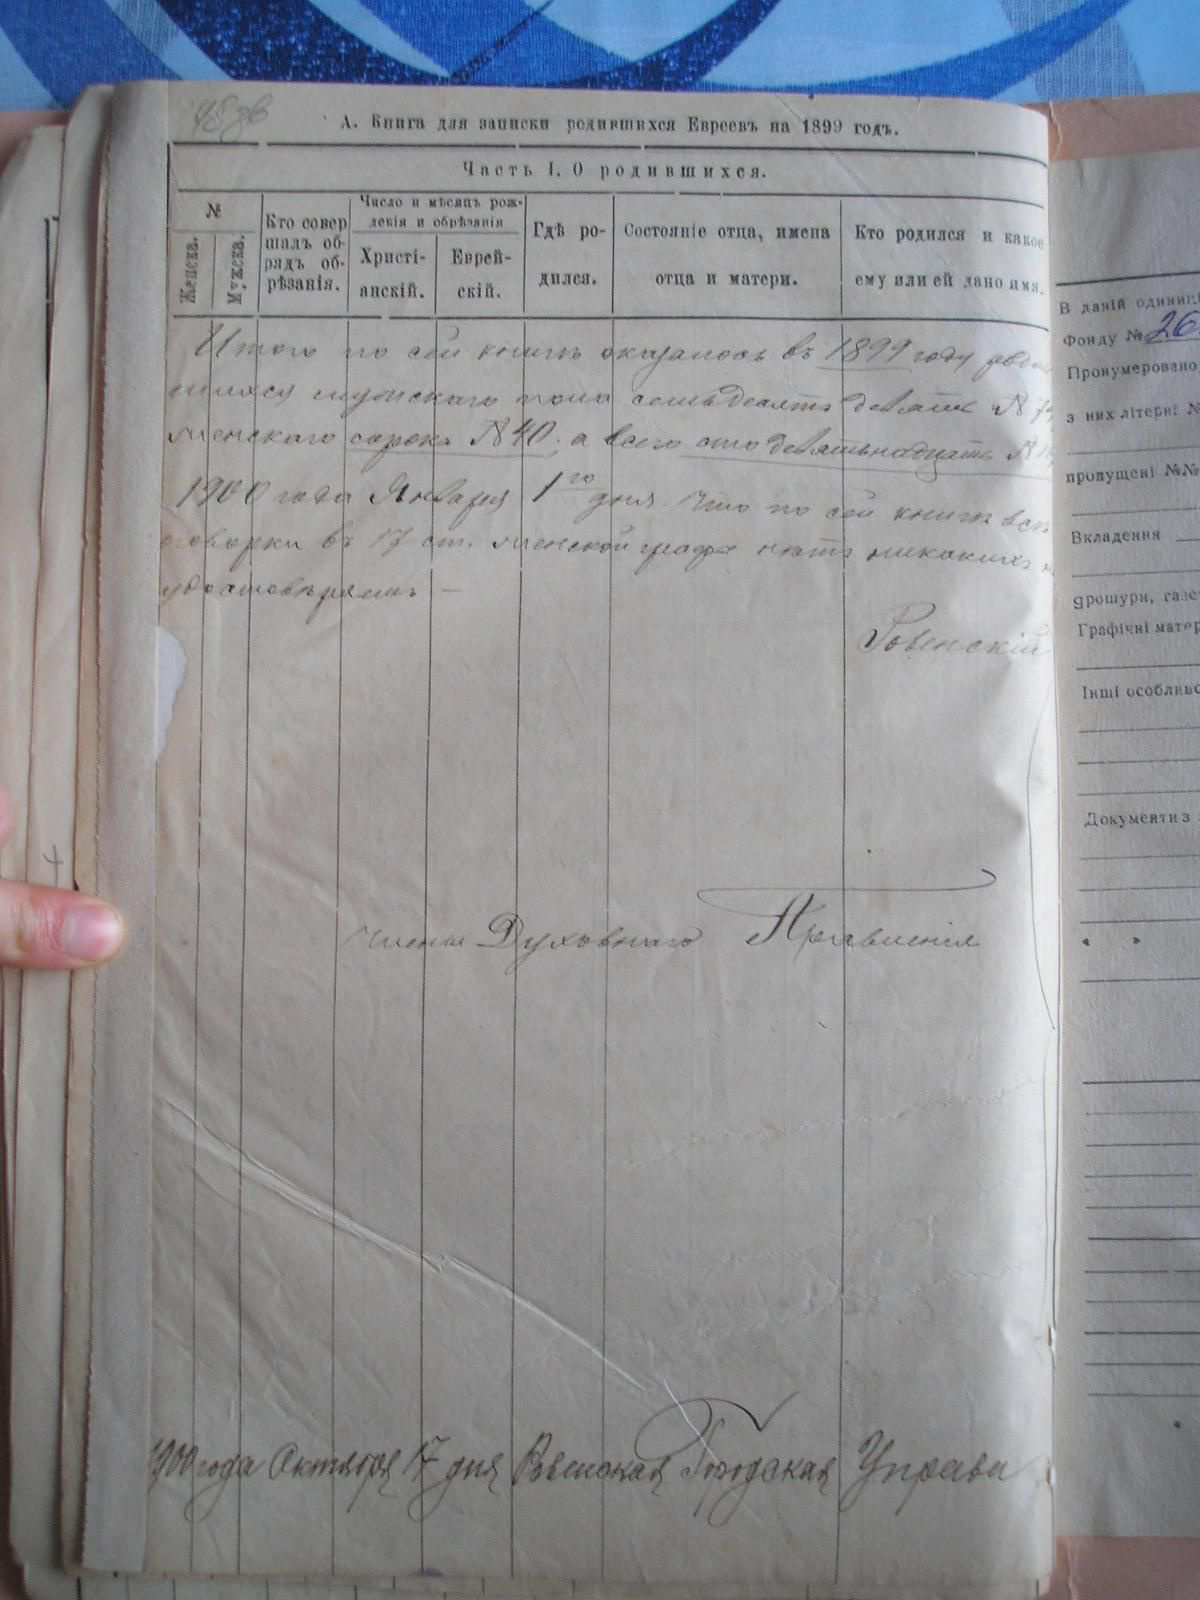 А. Книга для записки родившихся Евреевъ на 1899 годъ.
Часть I. О родившихся.
№
Женска.
Мужска.
Кто совер
шалъ об-
рядъ об-
рѣзанія.
Число и мѣсяцъ рож-
денія и обрѣзанія
Христі-
анскій.
Еврей-
скій.
Гдѣ ро-
дился.
Состояніе отца, имена
отца и матери.
Кто родился и какое
ему или ей дано имя.
Итого по сей книгѣ оказалось въ 1899 году родив
шихся мужскаго пола семьдесятъ девять № 79
женскаго сорокъ № 40, а всего сто девятьнадцать №
1900 года Января 1го дня. Что по сей книгѣ
оговорки въ 17 ст. женской графѣ нѣтъ никакихъ
удостовѣряемъ —
Ровенскій
Члены Духовнаго Правленія
1900 года Октября 17 дня Ровенская Городская Управа
В даній одиниці
Фонду № 26
Пронумеровано
з них літерні №
пропущені №№
Вкладення
брошури, газет
Графічні матер
Інші особливо
Документи з